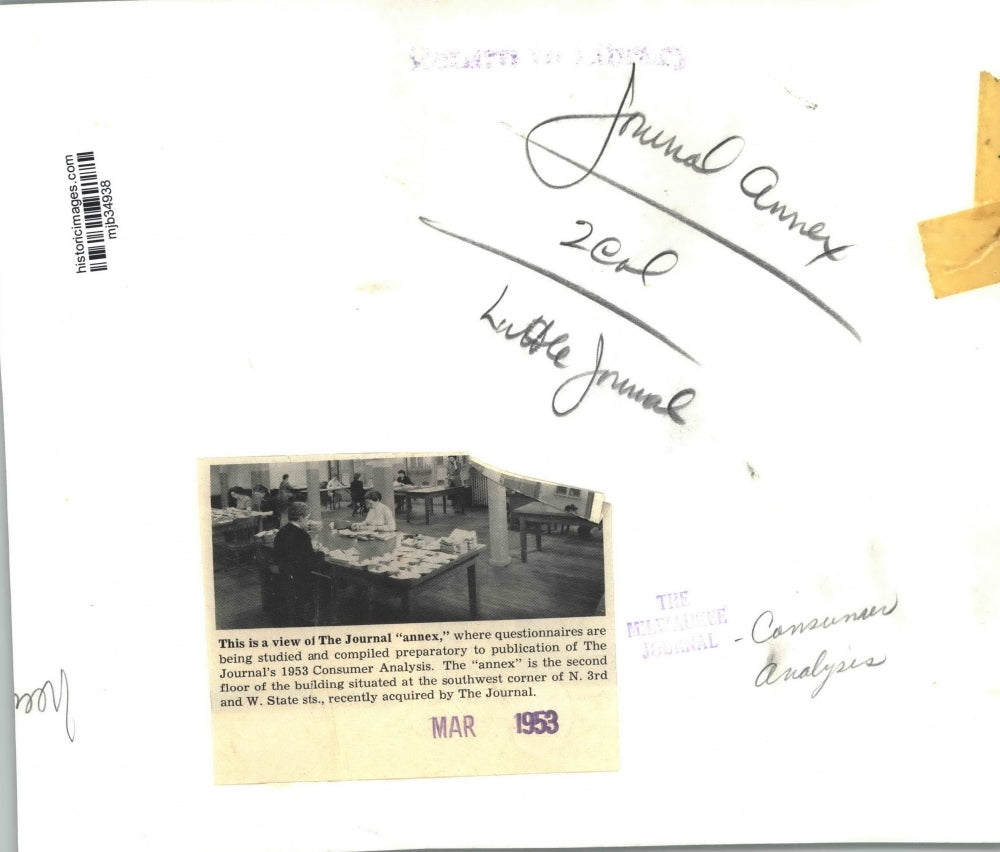 historicimages.com
mjb34938
Journal Annex
2 Col
Little Journal
This is a view of The Journal “annex,” where questionnaires are
being studied and compiled preparatory to publication of The
Journal's 1953 Consumer Analysis. The “annex” is the second
floor of the building situated at the southwest corner of N. 3rd
and W. State sts., recently acquired by The Journal.
MAR 1953
THE
MILWAUKEE
JOURNAL
- Consumer
Analysis